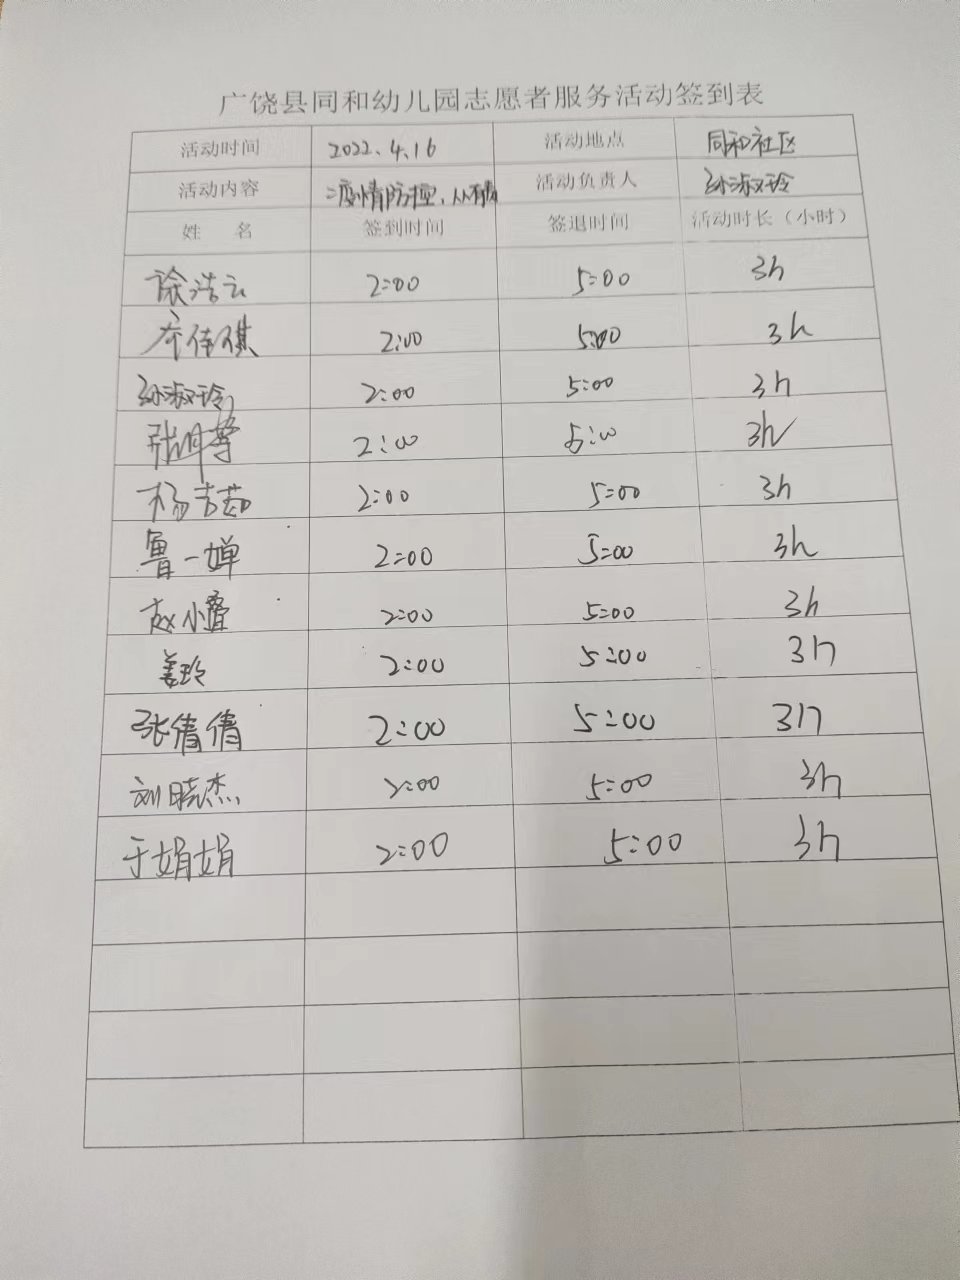 广饶县同和幼儿园志愿者服务活动签到表
活动时间 2022.4.16 活动地点 同和社区
活动内容 疫情防控,人人有责 活动负责人 孙淑玲
姓 名 签到时间 签退时间 活动时长（小时）
徐浩云 2:00 5:00 3h
2:00 5:00 3h
孙淑玲 2:00 5:00 3h
张 2:00 5:00 3h
杨吉茹 2:00 5:00 3h
鲁一婵 2:00 5:00 3h
赵小 2:00 5:00 3h
姜玲 2:00 5:00 3h
张倩倩 2:00 5:00 3h
刘晓杰 2:00 5:00 3h
于娟娟 2:00 5:00 3h